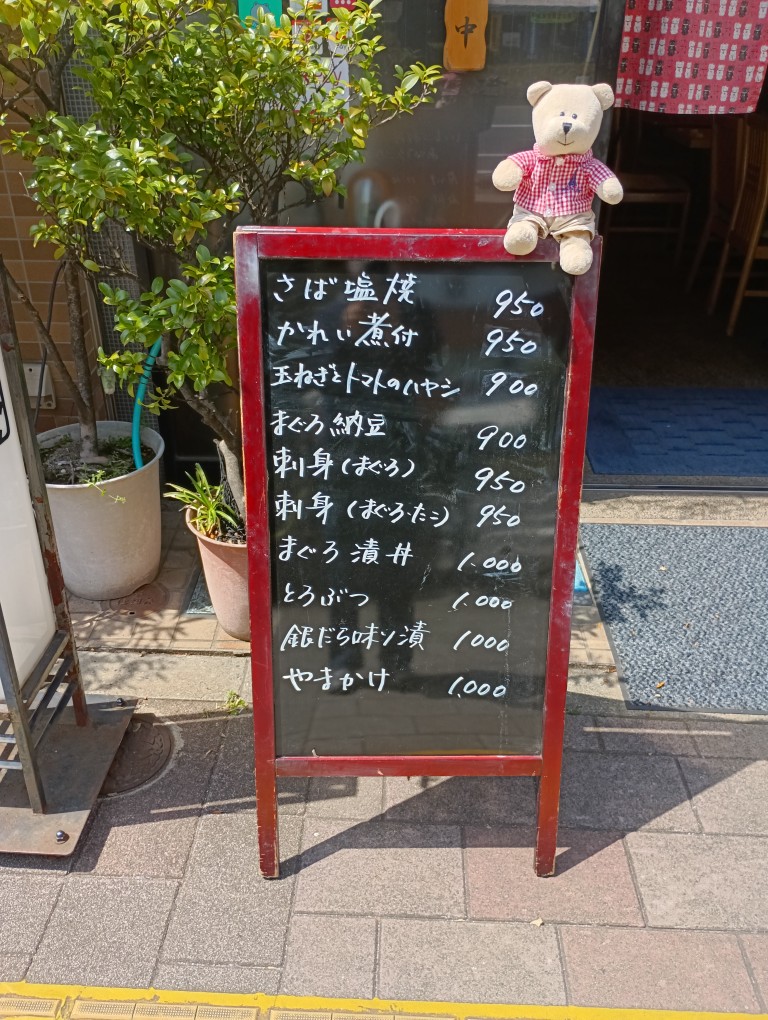 中
さば塩焼 950
かれい煮付 950
玉ねぎとトマトのハヤシ 900
まぐろ納豆 900
刺身(まぐろ) 950
刺身(まぐろ・たこ) 950
まぐろ漬丼 1.000
とろぶつ 1.000
銀だら味ソ漬 1000
やまかけ 1.000